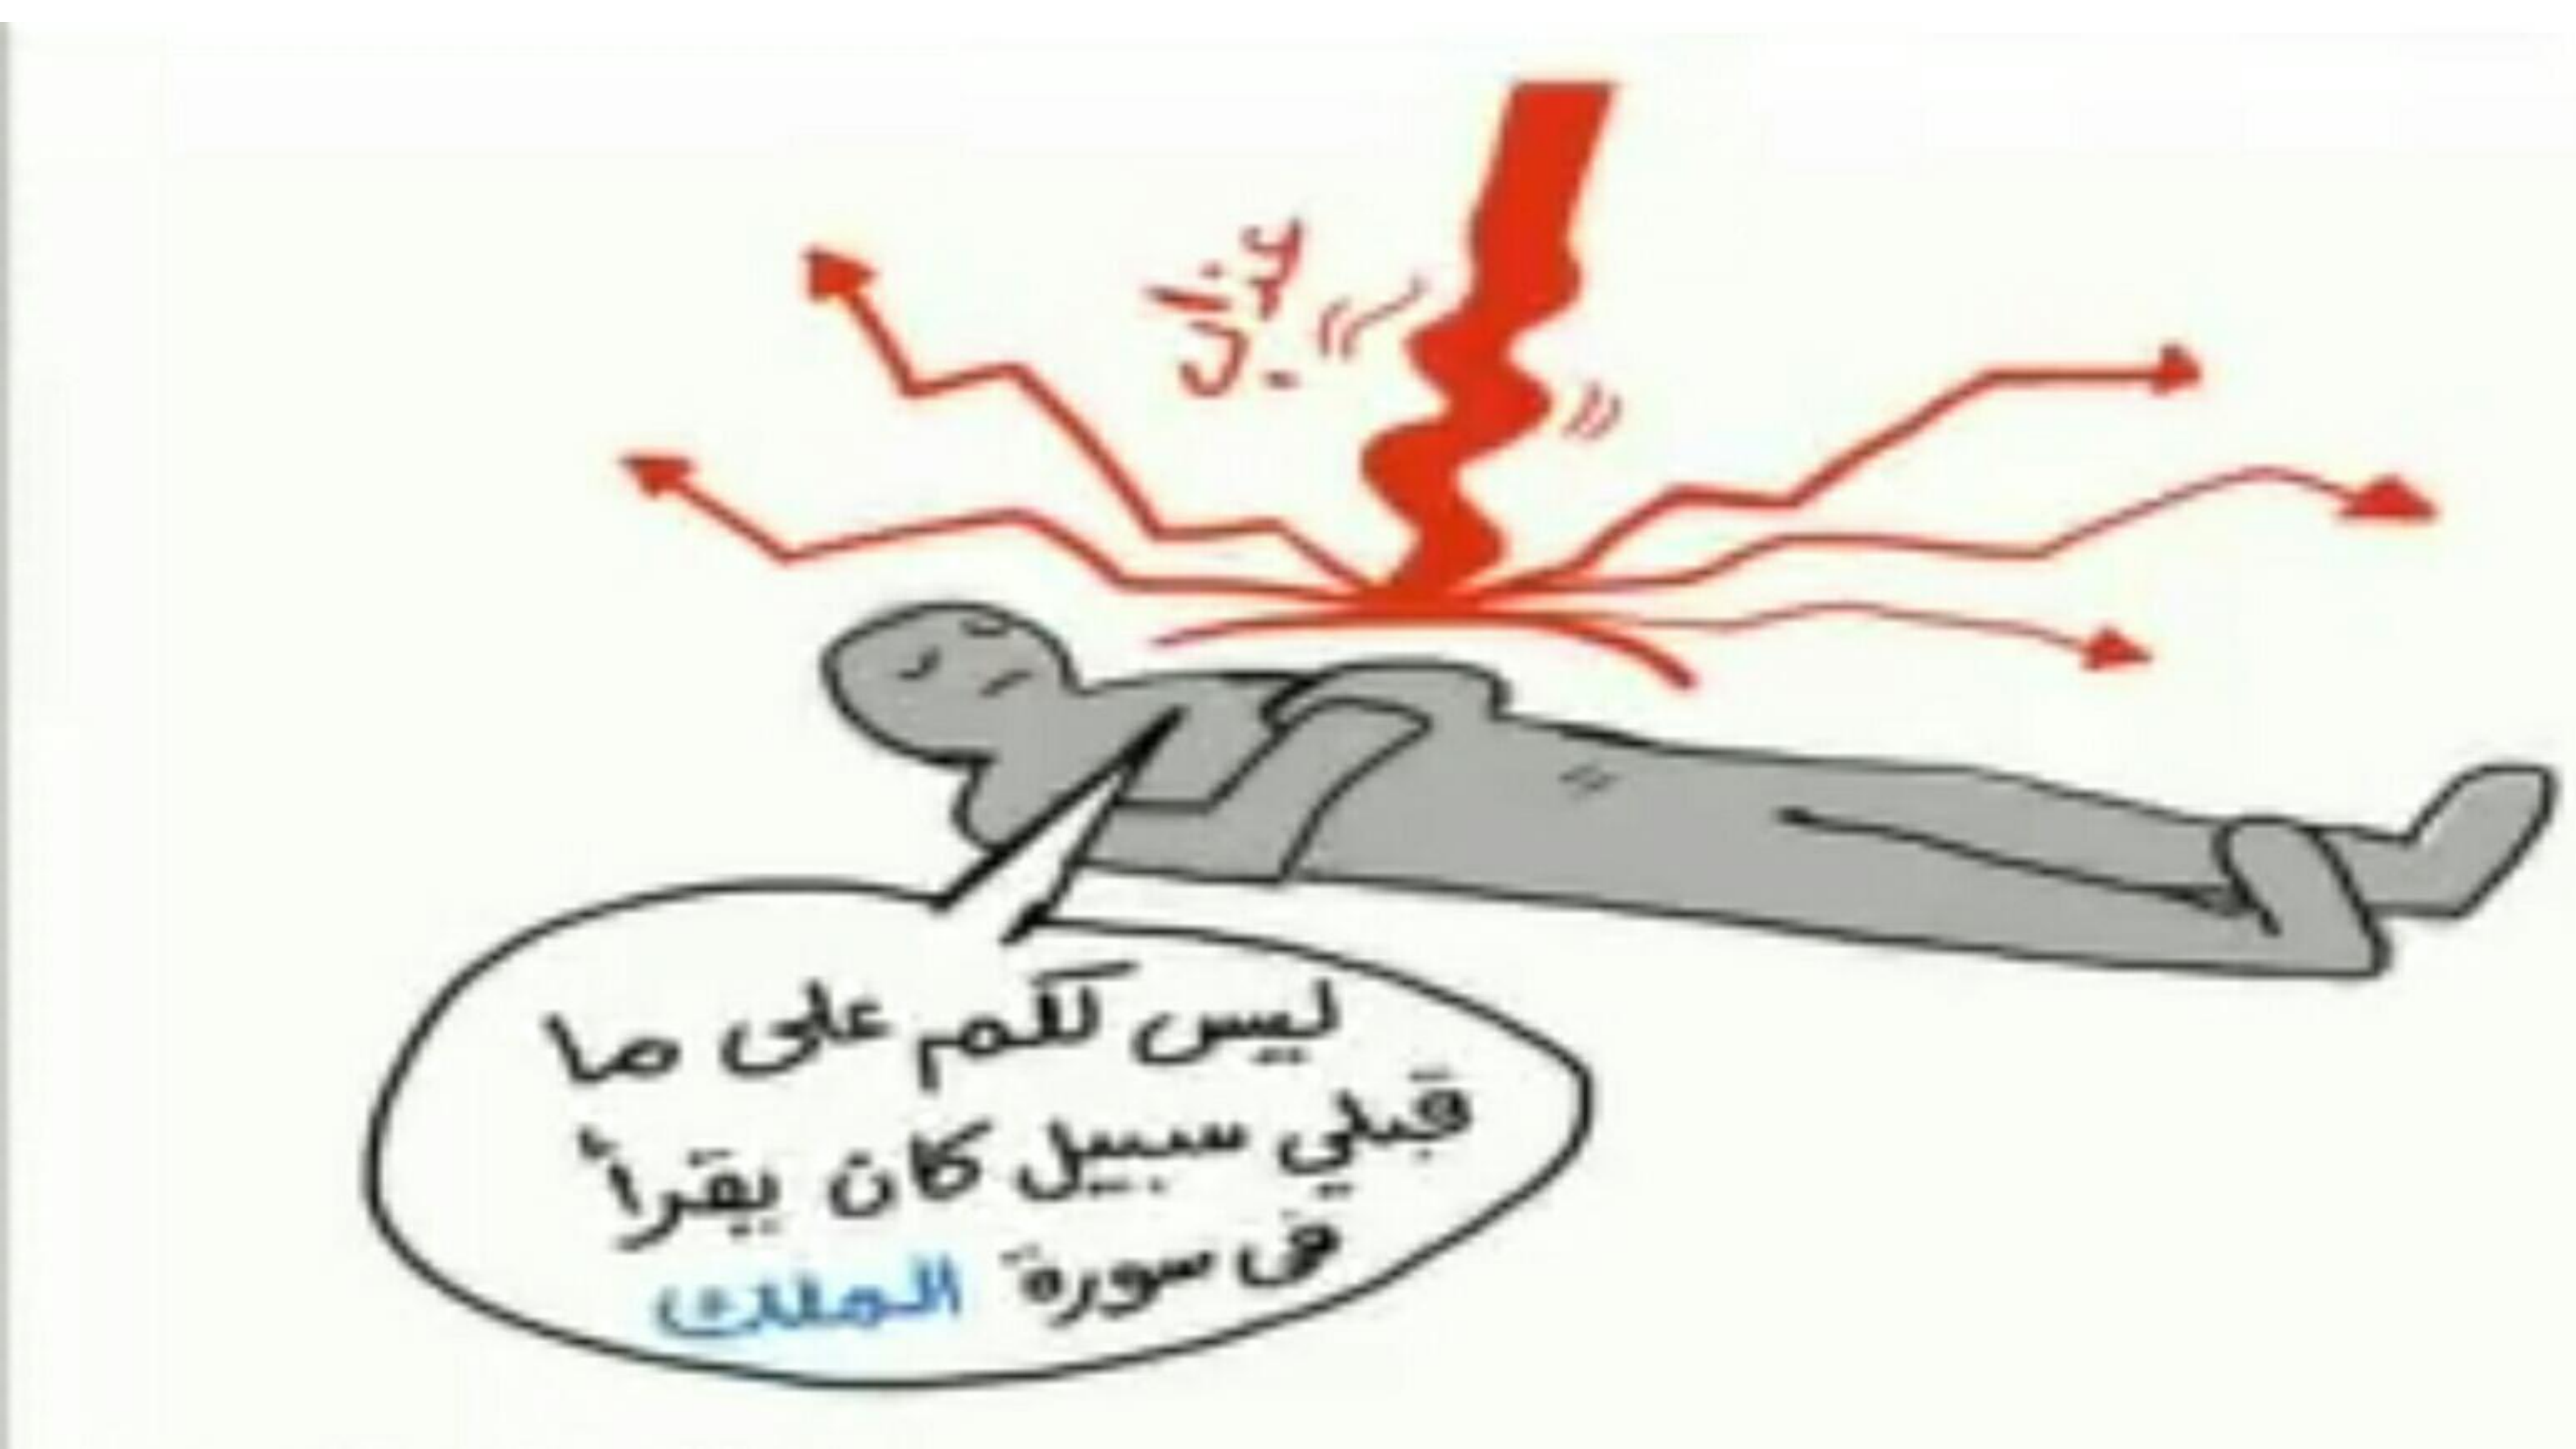 عذاب
ليس لكم على ما
قبلي سبيل كان يقرأ
في سورة الملك